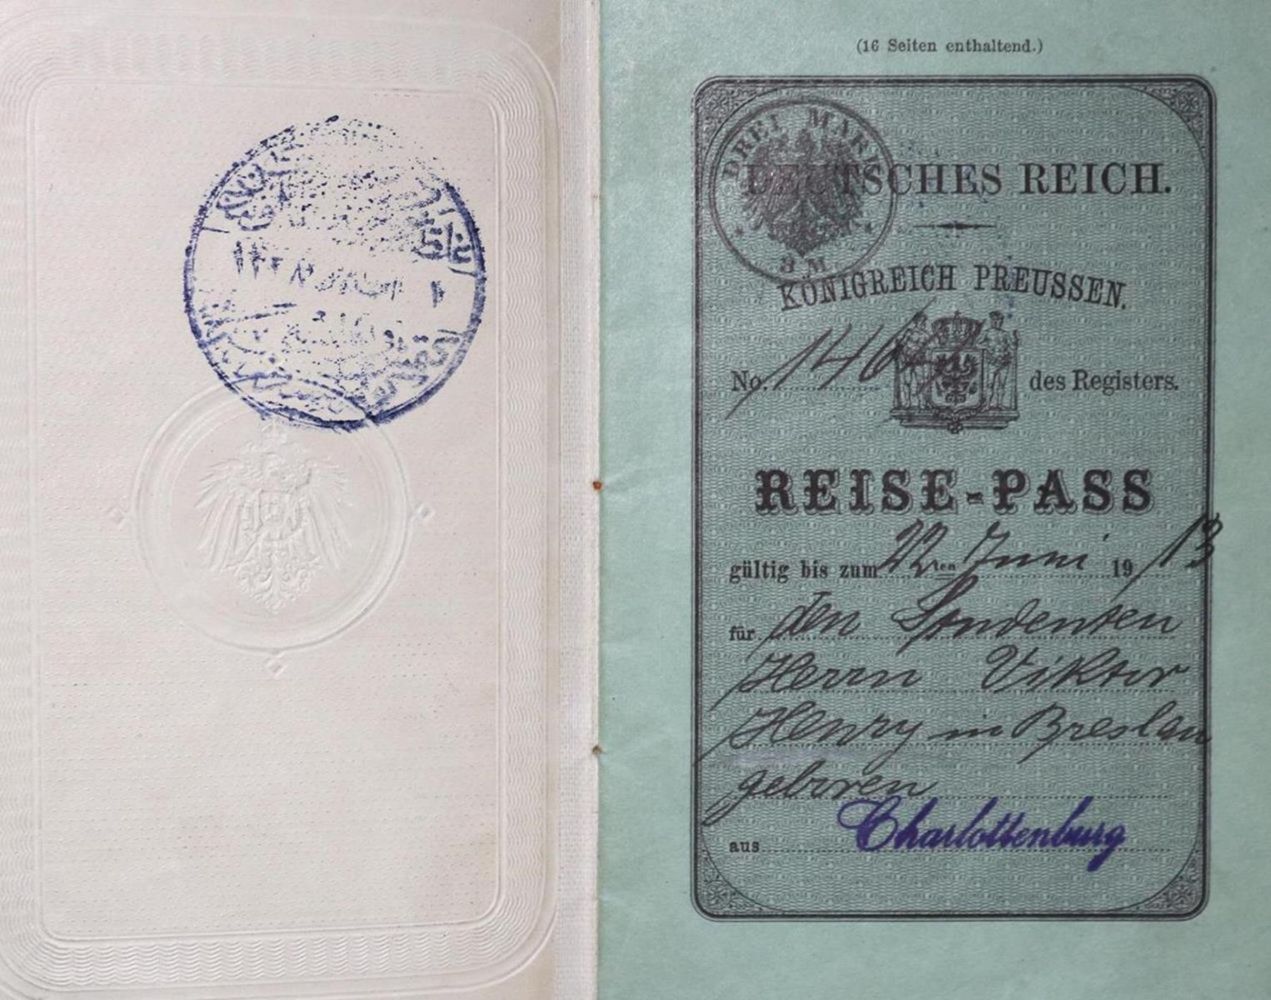 ١٣٢٨
(16 Seiten enthaltend.)
DREI MARK
3 M
DEUTSCHES REICH.
KÖNIGREICH PREUSSEN.
No. 146 des Registers.
REISE-PASS
gültig bis zum 22ten Juni 1913
für den Studenten
Herrn Viktor
Henry in Breslau
geboren
aus Charlottenburg